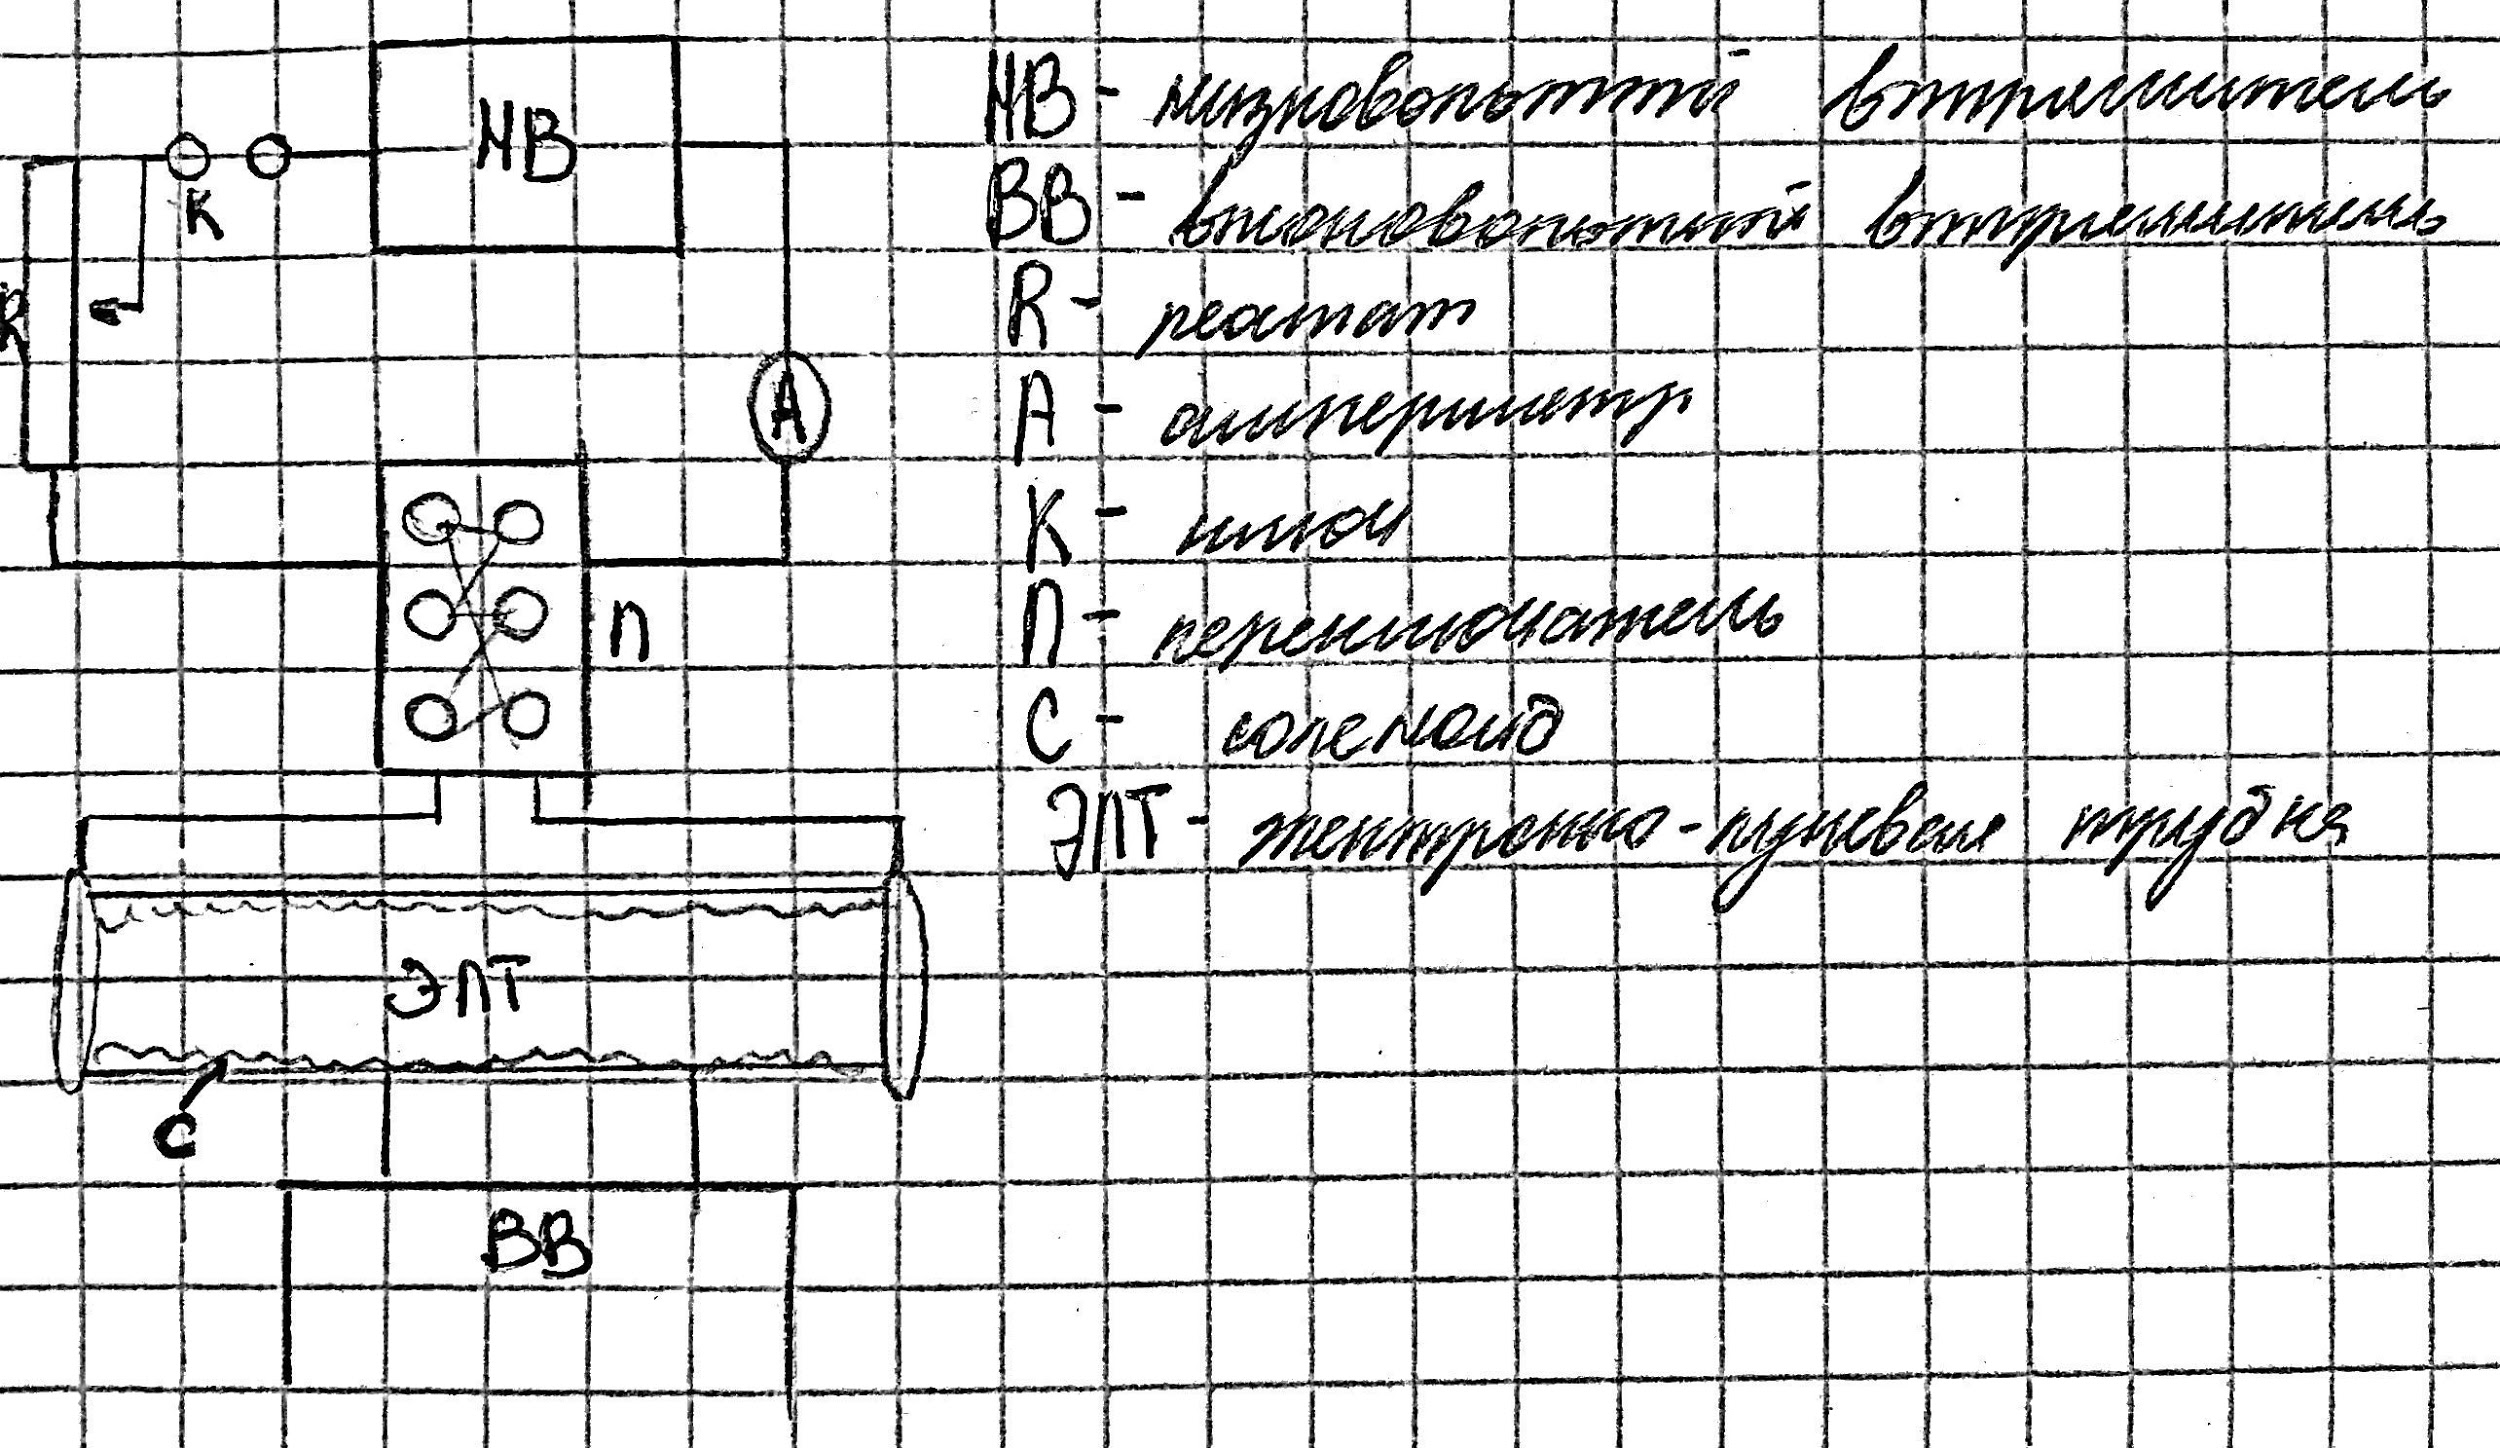 НВ
К
R
А
П
ЭЛТ
С
ВВ
НВ - низковольтный выпрямитель
ВВ - высоковольтный выпрямитель
R - реостат
А - амперметр
К - ключ
П - переключатель
С - соленоид
ЭЛТ - электронно-лучевая трубка